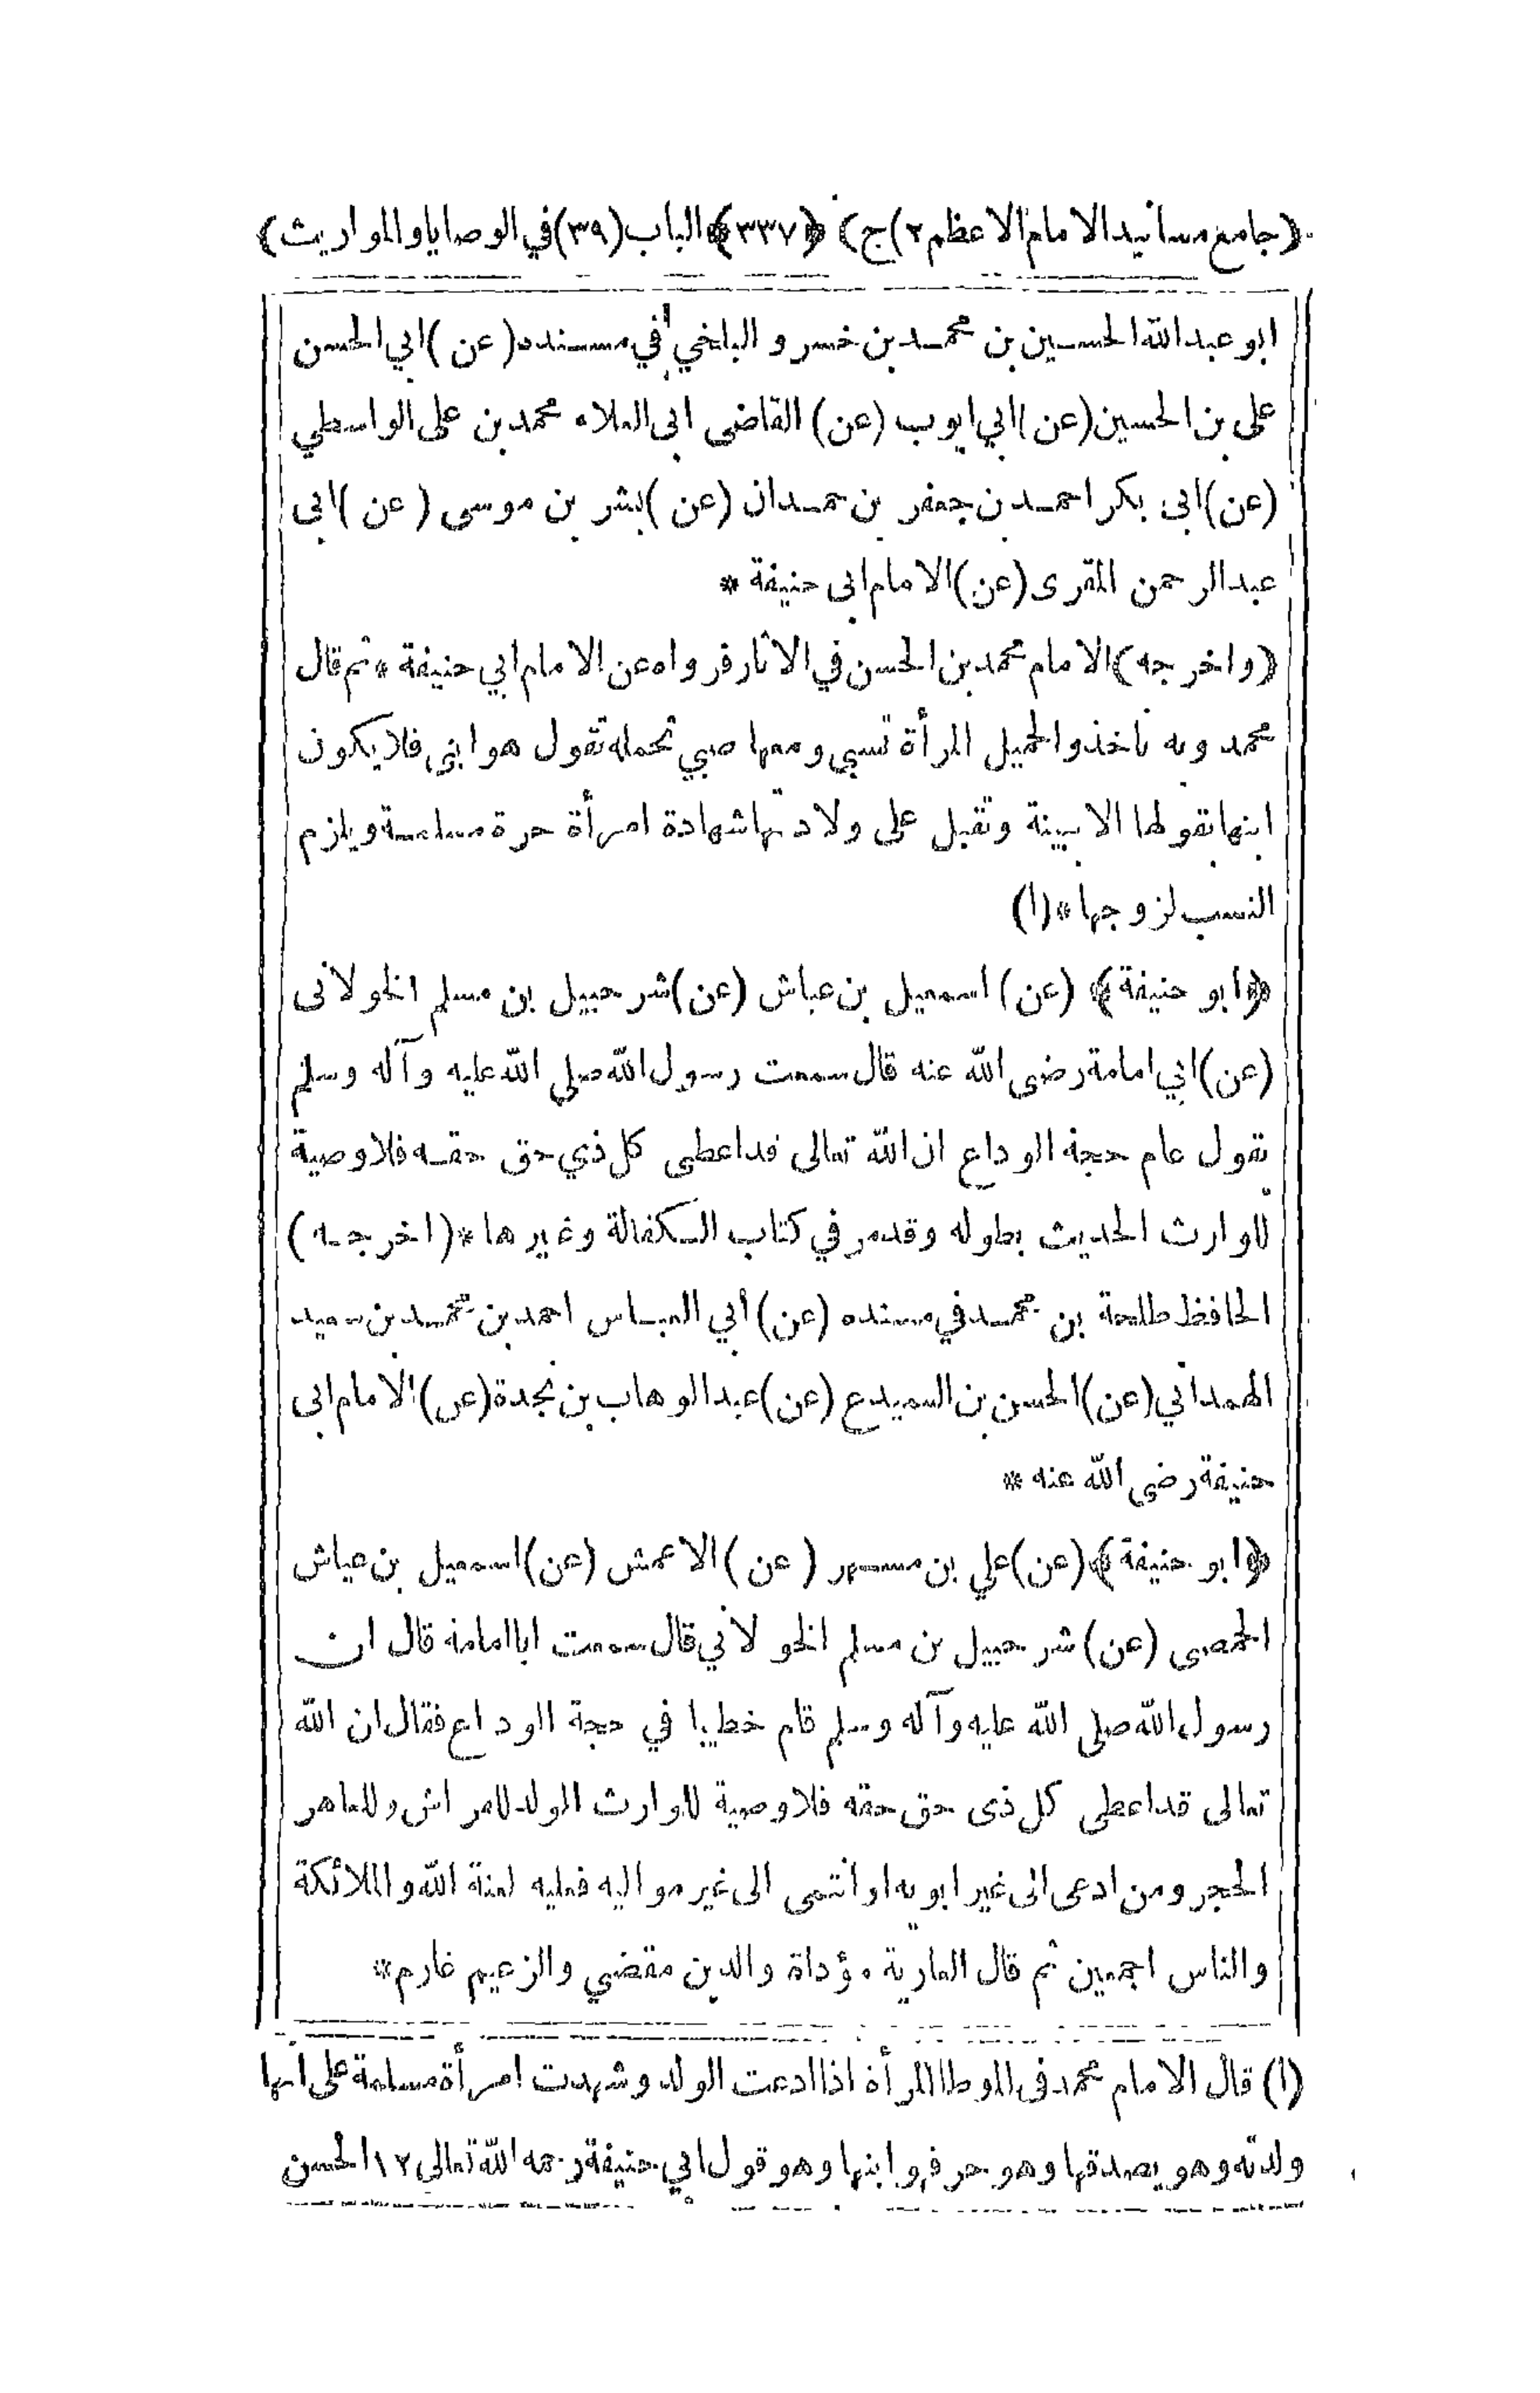 ﴿جامع مسانيد الامام الاعظم ٢)ج﴾ ﴿٣٣٧﴾ الباب (٣٩) في الوصايا والمواريث﴾
ابو عبد الله الحسين بن محمد بن خسرو البلخي في مسنده (عن) ابي الحسن
على بن الحسين (عن) ابي ايوب (عن) القاضى ابى العلاء محمد بن على الواسطي
(عن) ابى بكر احمد بن جعفر بن حمدان (عن) بشر بن موسى (عن) ابى
عبد الرحمن المقرى (عن) الامام ابى حنيفة *
﴿واخرجه﴾ الامام محمد بن الحسن في الاثار فرواه عن الامام ابي حنيفة * ثم قال
محمد وبه ناخذ والحميل المرأة تسبي ومعها صبي تحمله تقول هو ابنى فلا يكون
ابنها بقولها الا ببينة وتقبل على ولادتها شهادة امرأة حرة مسلمة ويلزم
النسب لزوجها *(١)
﴿ابو حنيفة﴾ (عن) اسمعيل بن عياش (عن) شرحبيل بن مسلم الخولانى
(عن) ابي امامة رضى الله عنه قال سمعت رسول الله صلى الله عليه وآله وسلم
يقول عام حجة الوداع ان الله تعالى قد اعطى كل ذي حق حقه فلا وصية
لوارث الحديث بطوله وقد مر في كتاب الكفالة وغيرها *(اخرجه)
الحافظ طلحة بن محمد في مسنده (عن) أبي العباس احمد بن محمد بن سعيد
الهمداني (عن) الحسن بن السميدع (عن) عبد الوهاب بن نجدة (عن) الامام ابى
حنيفة رضى الله عنه *
﴿ابو حنيفة﴾ (عن) علي بن مسهر (عن) الاعمش (عن) اسمعيل بن عياش
الحمصى (عن) شرحبيل بن مسلم الخولاني قال سمعت ابا امامة قال ان
رسول الله صلى الله عليه وآله وسلم قام خطيبا في حجة الوداع فقال ان الله
تعالى قد اعطى كل ذى حق حقه فلا وصية لوارث الولد للفراش وللعاهر
الحجر ومن ادعى الى غير ابويه او انتمى الى غير مواليه فعليه لعنة الله والملائكة
والناس اجمعين ثم قال العارية مؤداة والدين مقضي والزعيم غارم *
(١) قال الامام محمد فى الموطا المرأة اذا ادعت الولد وشهدت امرأة مسلمة على انها
ولدته وهو يصدقها وهو حر فهو ابنها وهو قول ابي حنيفة رحمه الله تعالى ١٢ الحسن